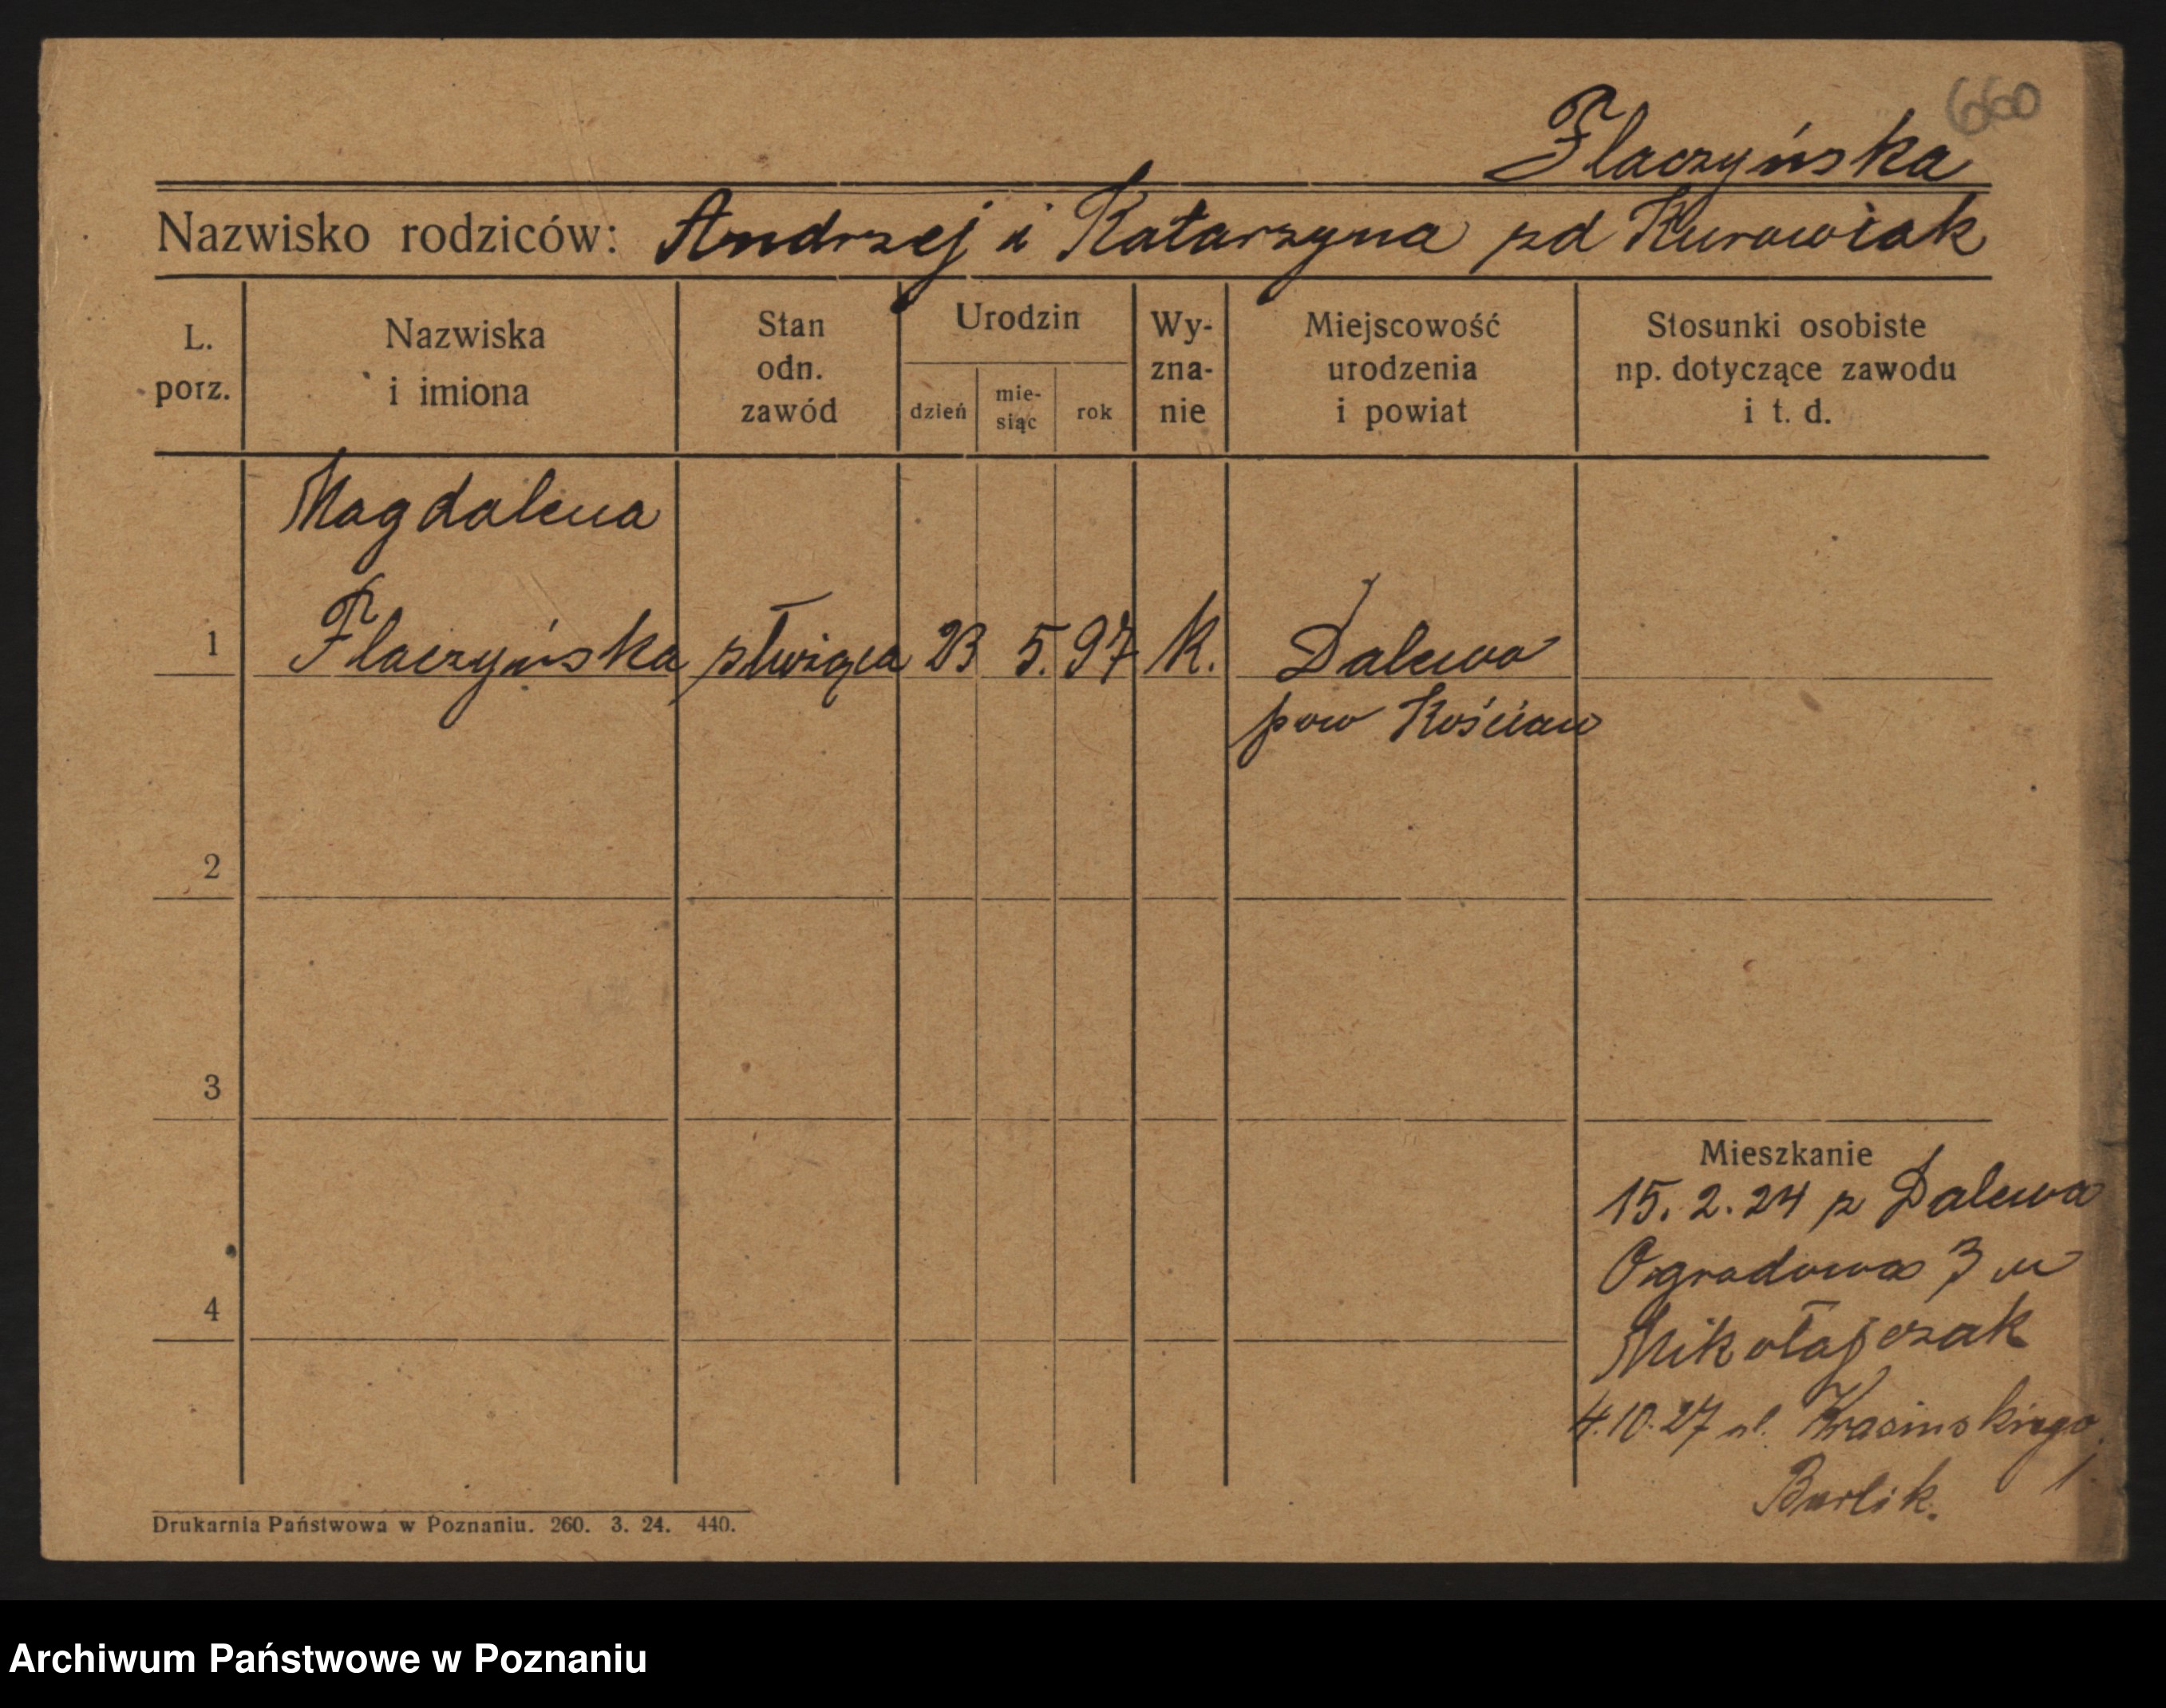 660
Flaczyńska
Nazwisko rodziców: Andrzej i Katarzyna zd Kurowiak
L. porz.
Nazwiska i imiona
Stan odn. zawód
Urodzin
dzień
mie-siąc
rok
Wy-zna-nie
Miejscowość urodzenia i powiat
Stosunki osobiste np. dotyczące zawodu i t. d.
Magdalena
1 Flaczyńska służąca 23 5. 97 K. Dalewo
pow Kościan
2
3
Mieszkanie
15. 2. 24 z Dalewa
Ogrodowa 3 u
4
Mikołajczak
4.10.27 ul. Krasinskiego 1.
Burlik.
Drukarnia Państwowa w Poznaniu. 260. 3. 24. 440.
Archiwum Państwowe w Poznaniu